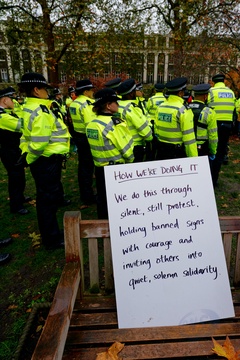 HOW WE'RE DOING IT
We do this through
silent, still protest.
holding banned signs
with courage and
inviting others into
quiet, solemn solidarity